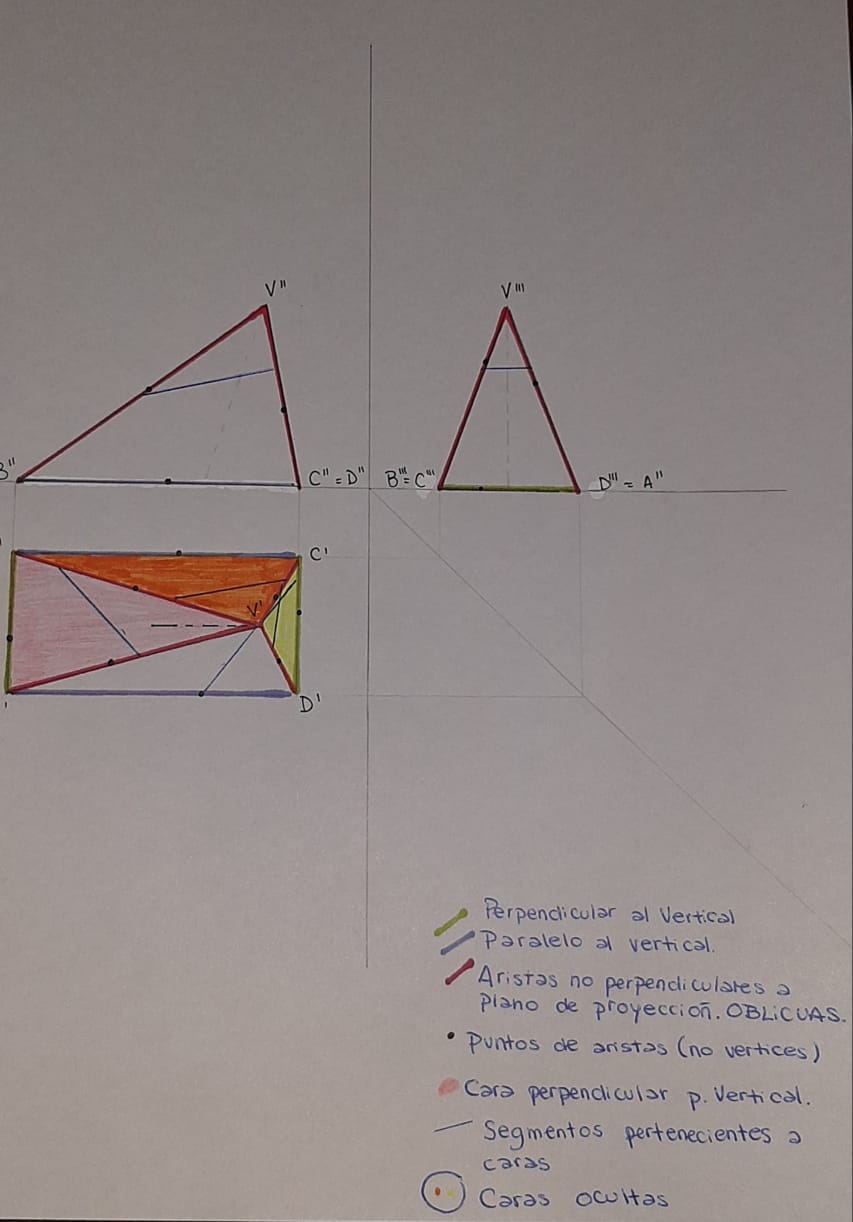 V"
V'''
B"
C" = D"
B''' = C'''
D''' = A"
C'
V'
D'
Perpendicular al Vertical
Paralelo al vertical.
Aristas no perpendiculares a
plano de proyección. OBLiCUAS.
Puntos de aristas (no vertices)
Cara perpendicular p. Vertical.
Segmentos pertenecientes a
caras
Caras ocultas